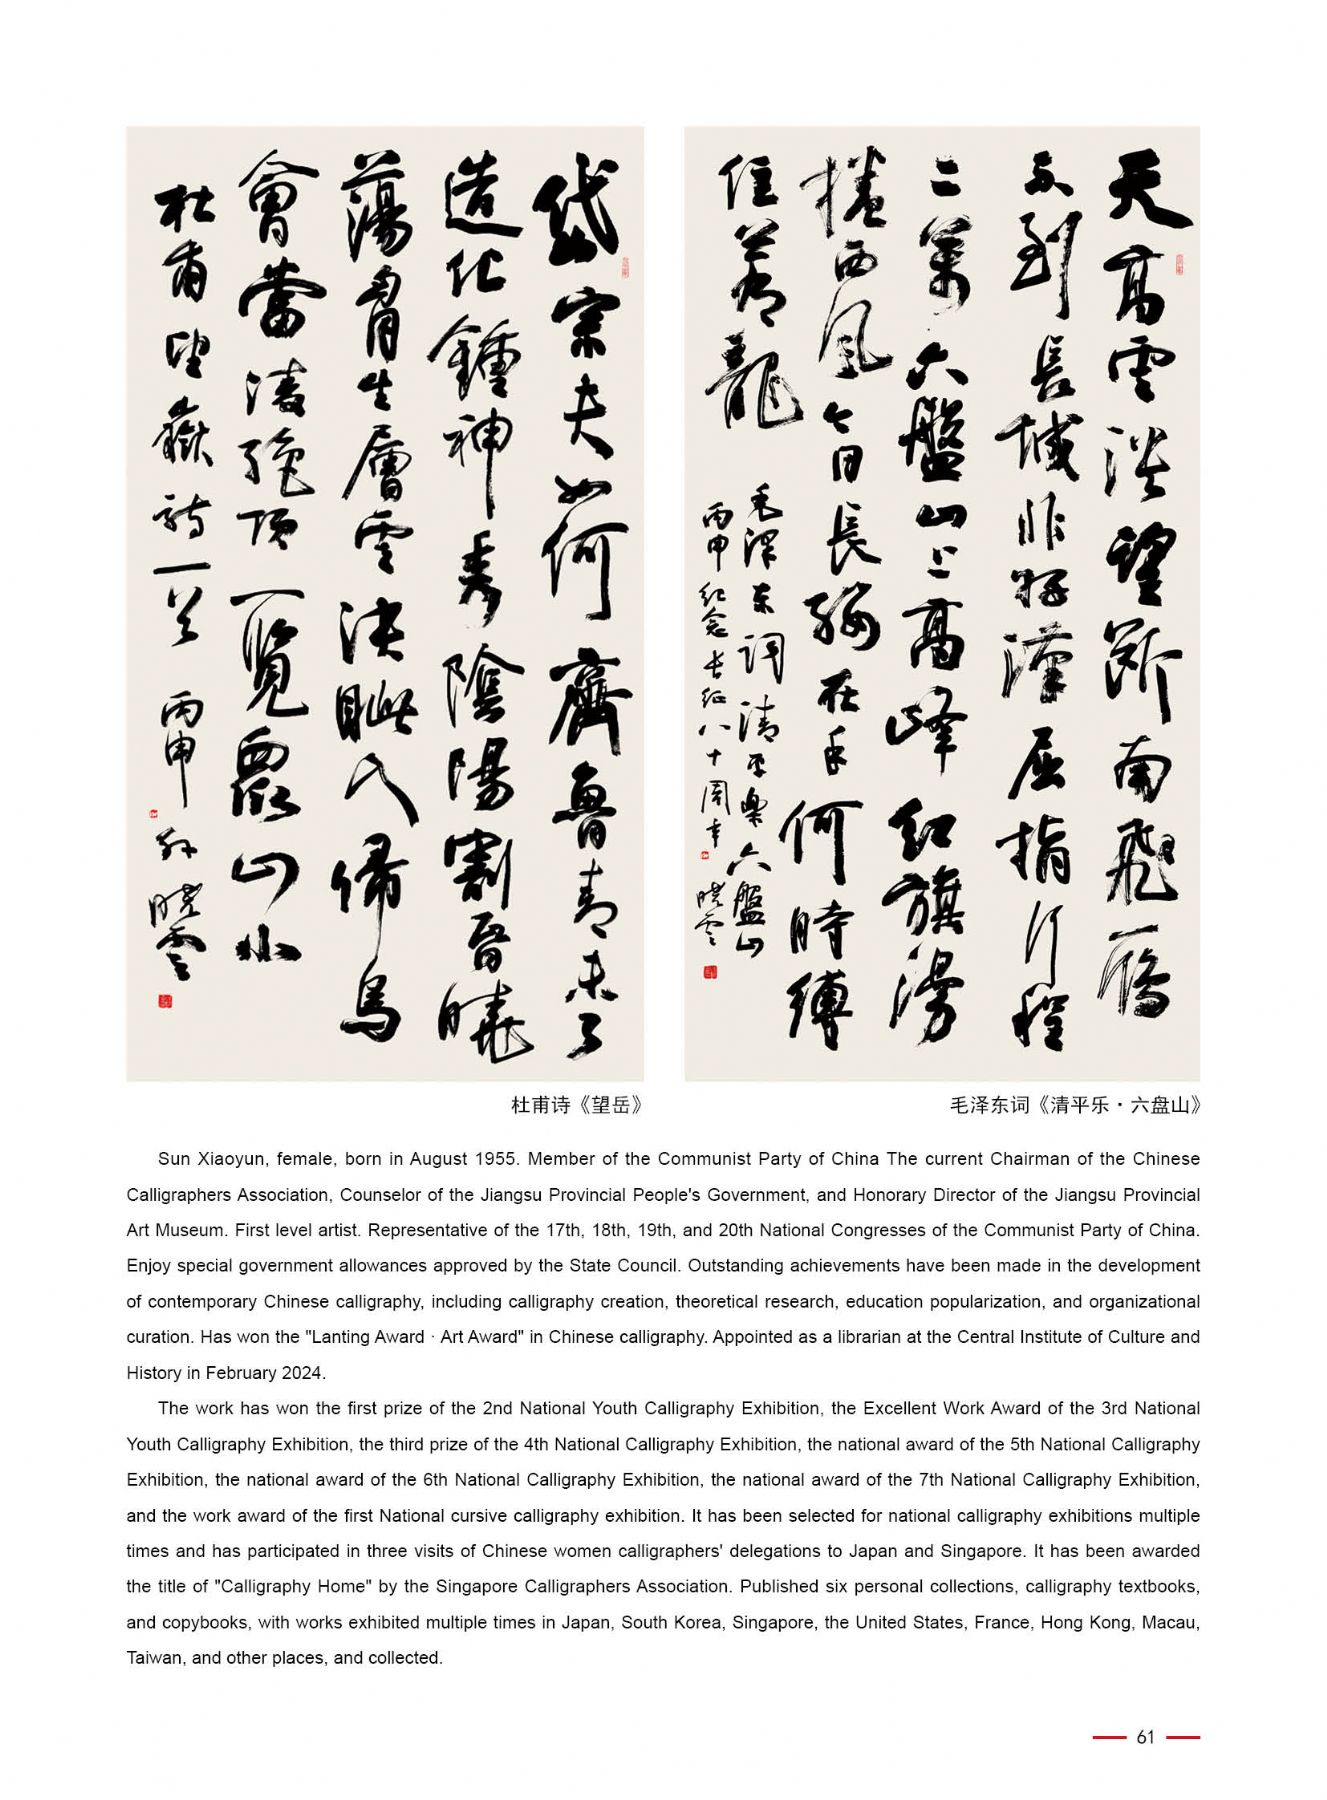 岱宗夫如何齊魯青未了
造化鍾神秀陰陽割昏曉
蕩胷生層雲決眦入歸鳥
會當淩絶頂一覽衆山小
杜甫望嶽詩一首 丙申 孫曉雲
天高雲淡望斷南飛雁
不到長城非好漢屈指行程
二萬六盤山上高峰紅旗漫
捲西風今日長纓在手何時縛
住蒼龍
毛澤东詞清平樂六盤山
丙申紀念長征八十周年 曉雲
杜甫诗《望岳》
毛泽东词《清平乐·六盘山》
Sun Xiaoyun, female, born in August 1955. Member of the Communist Party of China The current Chairman of the Chinese
Calligraphers Association, Counselor of the Jiangsu Provincial People's Government, and Honorary Director of the Jiangsu Provincial
Art Museum. First level artist. Representative of the 17th, 18th, 19th, and 20th National Congresses of the Communist Party of China.
Enjoy special government allowances approved by the State Council. Outstanding achievements have been made in the development
of contemporary Chinese calligraphy, including calligraphy creation, theoretical research, education popularization, and organizational
curation. Has won the "Lanting Award · Art Award" in Chinese calligraphy. Appointed as a librarian at the Central Institute of Culture and
History in February 2024.
The work has won the first prize of the 2nd National Youth Calligraphy Exhibition, the Excellent Work Award of the 3rd National
Youth Calligraphy Exhibition, the third prize of the 4th National Calligraphy Exhibition, the national award of the 5th National Calligraphy
Exhibition, the national award of the 6th National Calligraphy Exhibition, the national award of the 7th National Calligraphy Exhibition,
and the work award of the first National cursive calligraphy exhibition. It has been selected for national calligraphy exhibitions multiple
times and has participated in three visits of Chinese women calligraphers' delegations to Japan and Singapore. It has been awarded
the title of "Calligraphy Home" by the Singapore Calligraphers Association. Published six personal collections, calligraphy textbooks,
and copybooks, with works exhibited multiple times in Japan, South Korea, Singapore, the United States, France, Hong Kong, Macau,
Taiwan, and other places, and collected.
61